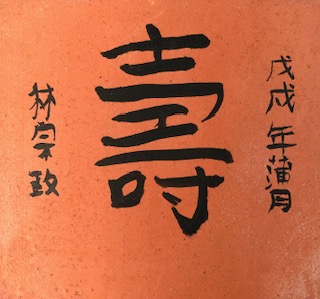 戊戌年蒲月
壽
林宗政